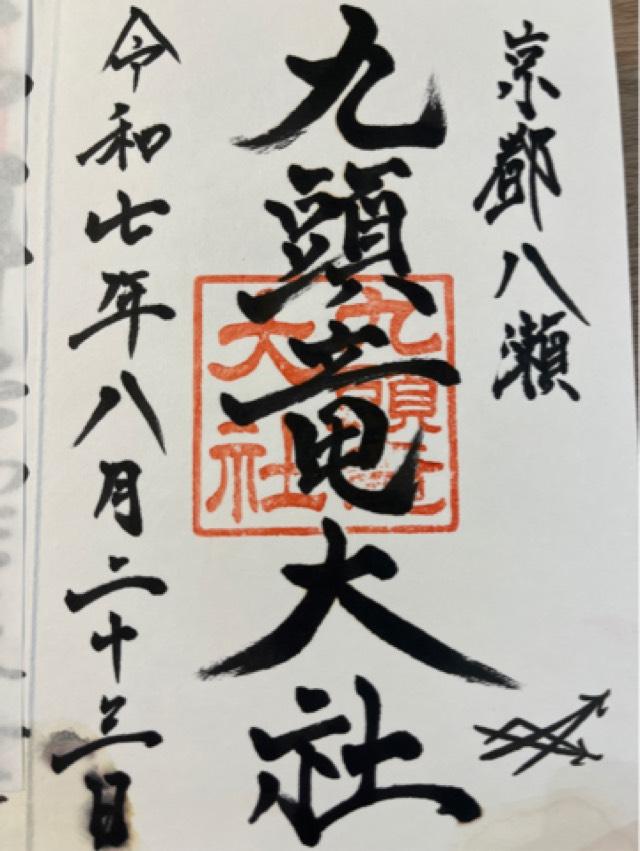 京都八瀬
九頭竜大社
九頭竜
大社
令和七年八月二十三日